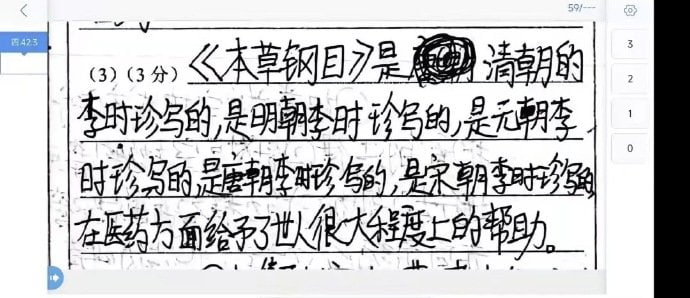 59/---
四.42.3
3
2
1
0
(3)(3分)《本草钢目》是清朝的
李时珍写的,是明朝李时珍写的,是元朝李
时珍写的,是唐朝李时珍写的,是宋朝李时珍写的
在医药方面给予了世人很大程度上的帮助。